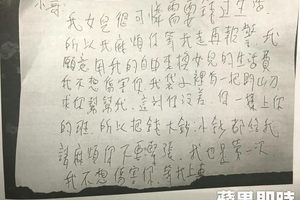 小哥
我女兒很可憐需要錢過生活
所以我麻煩你等我走再報警 我
願意用我的自由來換女兒的生活費
我不想傷害你 我袋子裡有一把西山刀
求你幫幫我 差別 你一樣上你
的班 所以把錢大鈔 小鈔都給我
請麻煩你不要緊張 我也是第一次
我不想傷害你 等我上車
蘋果即時